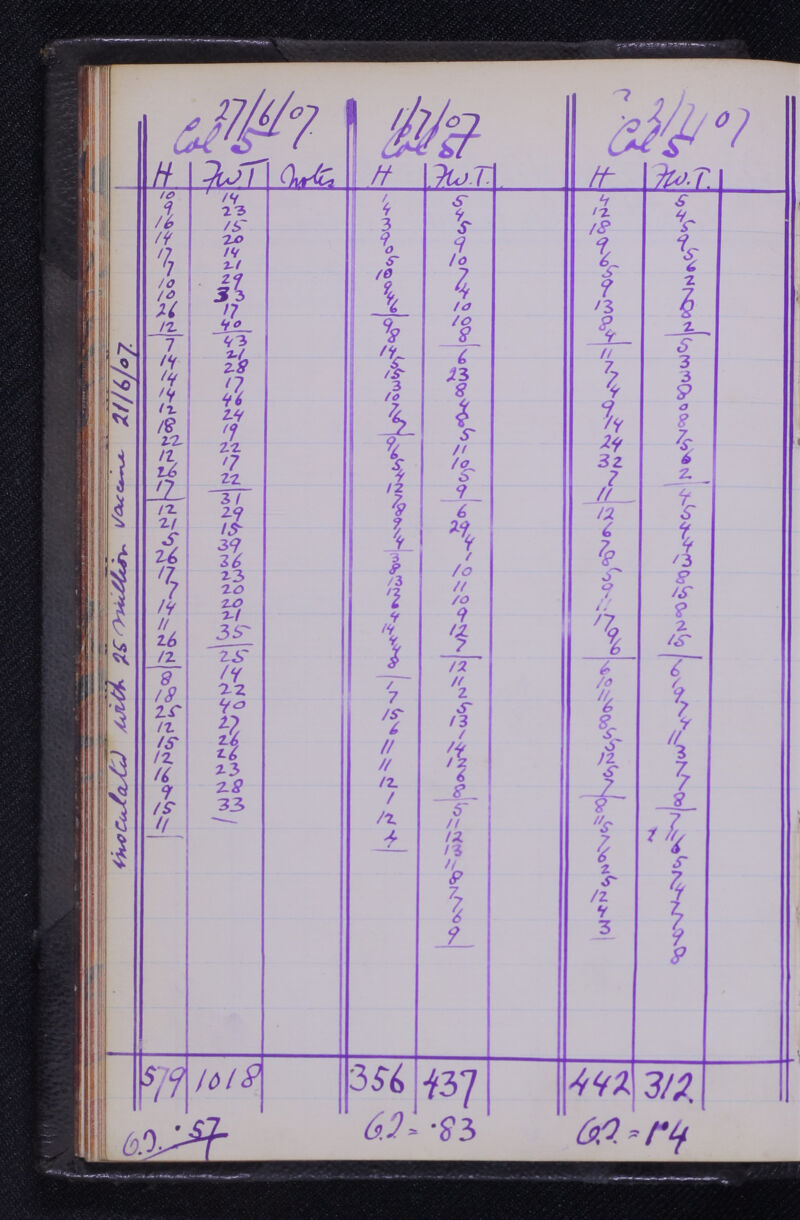 27/6/07. 1/7/07 ? 2/7/07
Col 5 Col 5 Col 5
H F.W.T Notes H F.W.T. H F.W.T.
inoculated with 25 million vaccine 21/6/07.
10 14
9 23
16 15
14 20
17 14
7 21
10 29
10 33
26 17
12 40
7 43
14 21
14 28
14 17
12 46
18 24
22 19
12 22
26 17
17 22
12 31
21 29
5 15
26 39
17 36
7 23
14 20
11 20
26 21
12 35
8 25
18 14
25 22
12 40
15 27
12 26
16 26
9 23
15 28
11 33
1 5
4 4
3 5
9 9
0 10
5 7
10 4
9 10
4 10
6 8
9 6
8 23
14 8
5 4
15 8
3 5
10 11
7 10
6 5
7 9
9 6
6 29
5 4
4 1
12 10
7 11
8 10
9 9
1 12
4 7
3 12
8 11
13 2
12 5
6 13
4 1
14 14
4 12
4 6
8 8
1 5
7 11
15 12
6 13
11 11
11 8
12 7
1 7
12 6
4 9
4 5
12 4
18 5
9 9
6 5
5 6
9 2
13 7
8 8
4 2
11 5
7 3
7 3
4 8
9 0
14 8
24 7
32 5
7 6
11 2
12 4
6 5
7 4
8 4
5 13
9 8
11 15
17 8
9 2
6 15
6 6
10 1
11 9
6 7
8 4
5 11
5 3
12 7
5 7
7 8
8 7
11 11
5 6
7 5
6 7
2 4
5 7
12 7
4 9
3 8
579 1018 356 437 442 312
O.I. ·57 O.I. = ·83 O.I. = 1·4